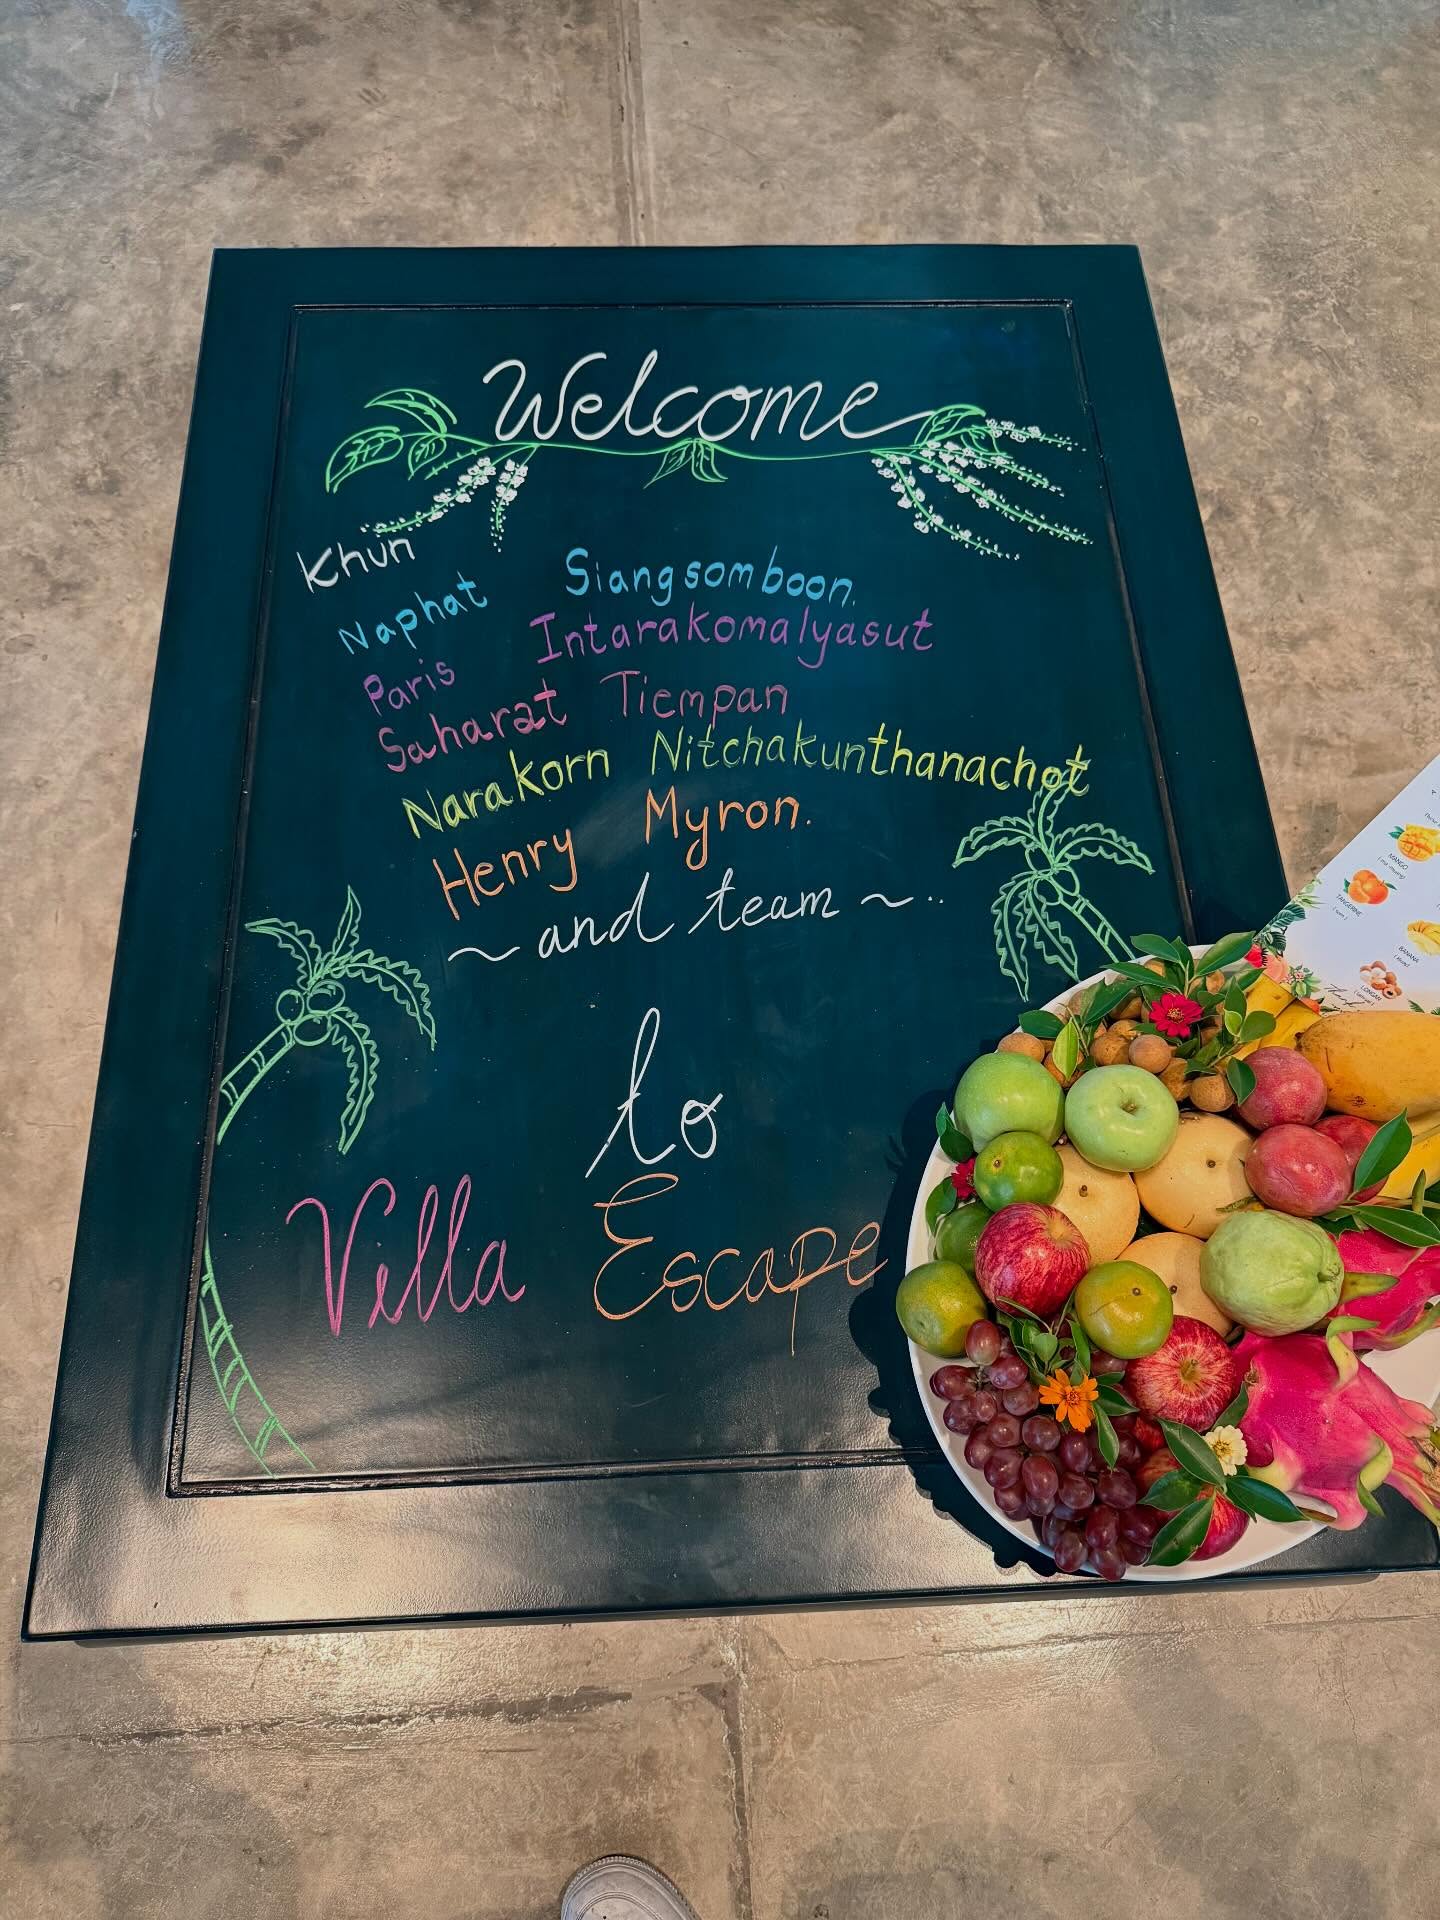 Welcome
Khun
Naphat Siangsomboon.
Paris Intarakomalyasut
Saharat Tiempan
Narakorn Nitchakunthanachot
Henry Myron.
~ and team ~..
to
Villa Escape
MANGO
TANGERINE
BANANA
LONGAN